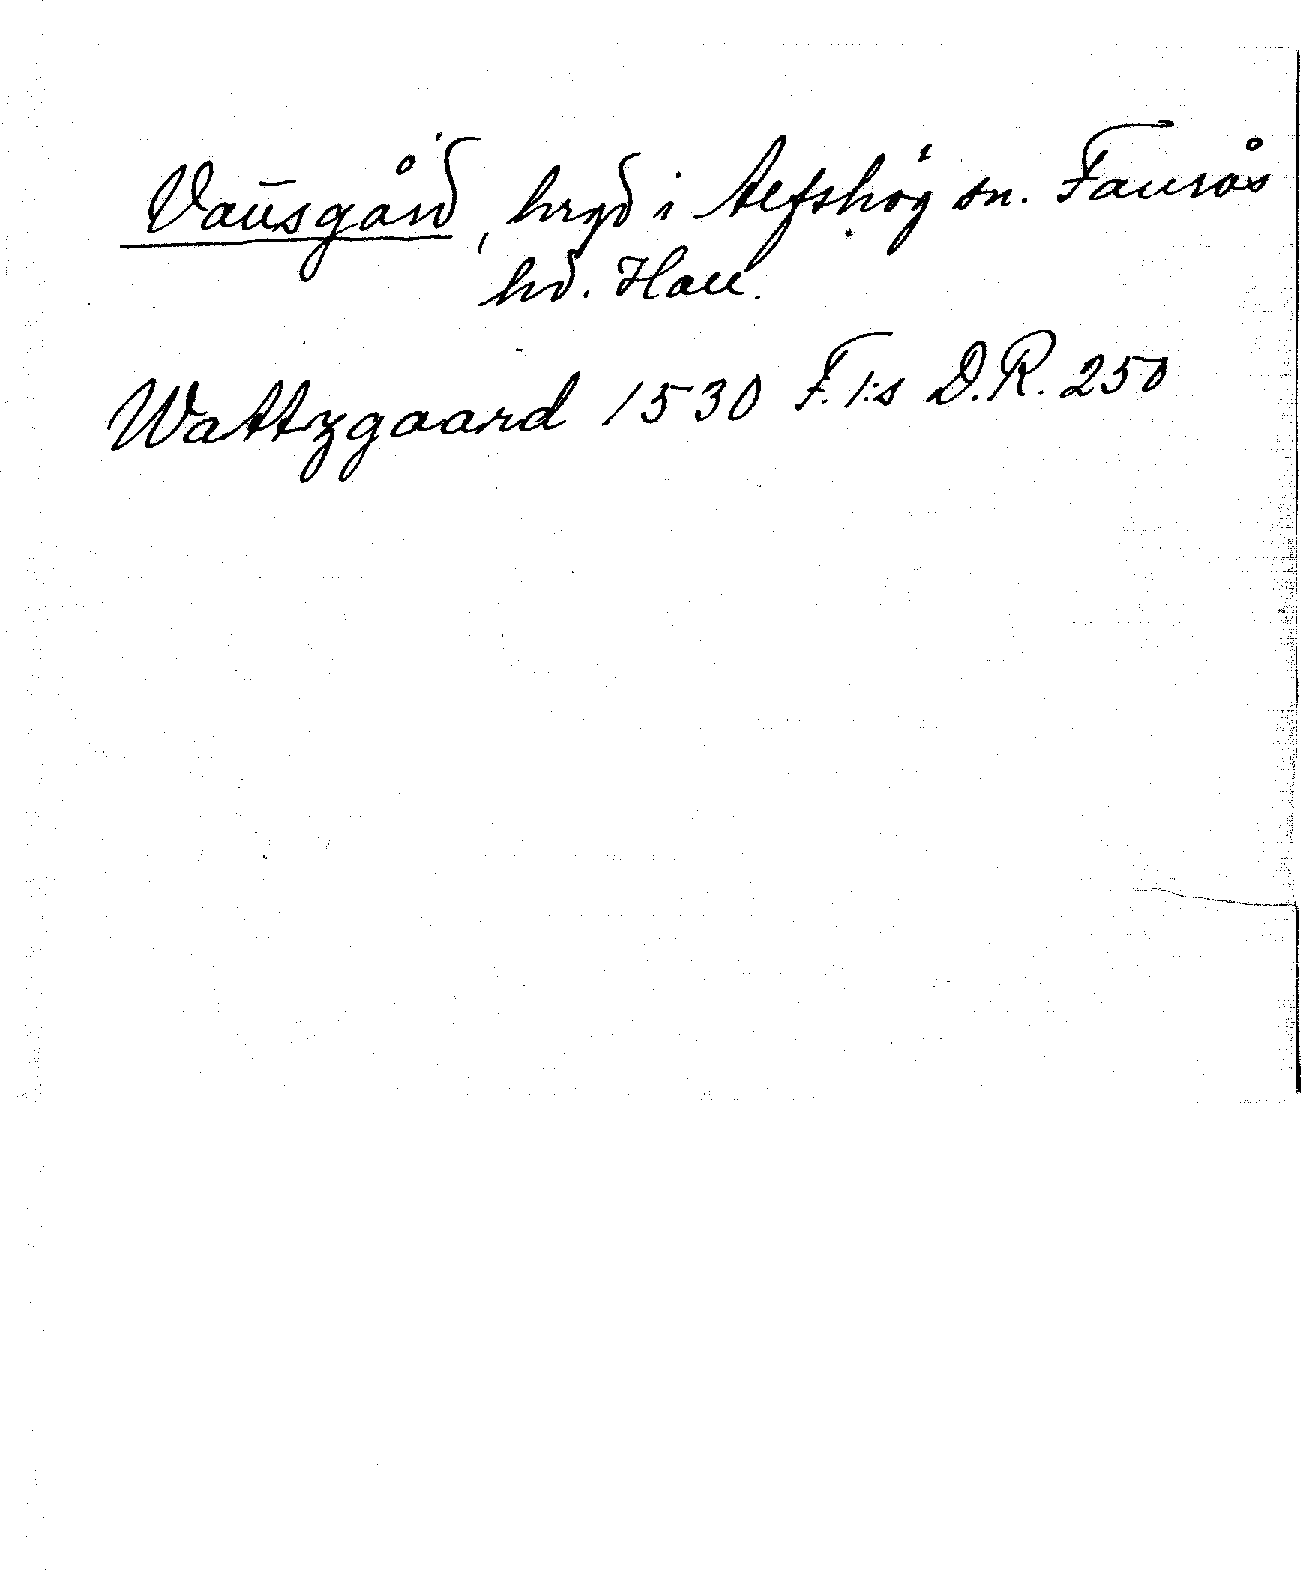 Vaüsgård, hrgd i Alfshög sn. Faurås
hd. Hall.
Wattzgaard 1530 F. I:s D.R. 250